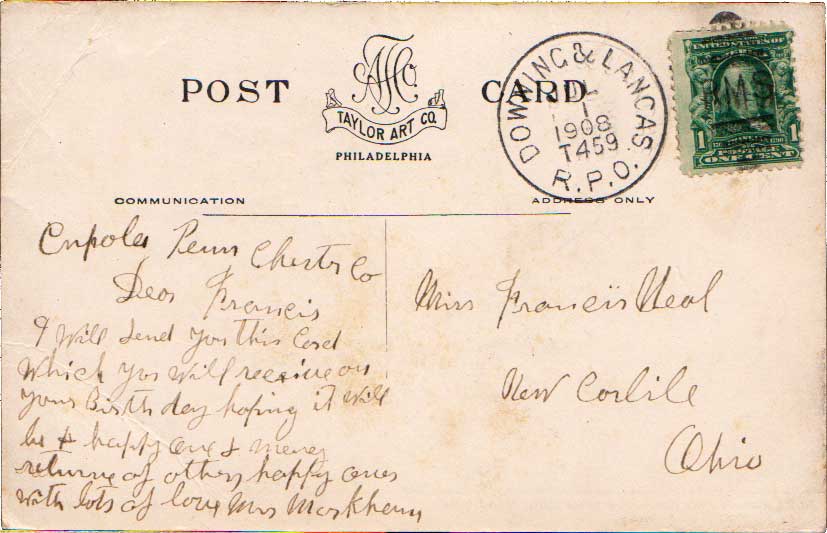 POST CARD
TAYLOR ART CO.
PHILADELPHIA
DOWNING & LANCAS.
1
1908
T459
R.P.O.
UNITED STATES OF
RMS
1 FRANKLIN 1
POSTAGE
ONE CENT
COMMUNICATION
ADDRESS ONLY
Cupola Penn Chester Co
Dear Francis
I Will send you this Card
Which you will receive on
your Birth day hoping it will
be a happy one & meney
returne of other happy ones
with lots of love Mrs Markham
Miss Francis Neal
New Carlile
Ohio